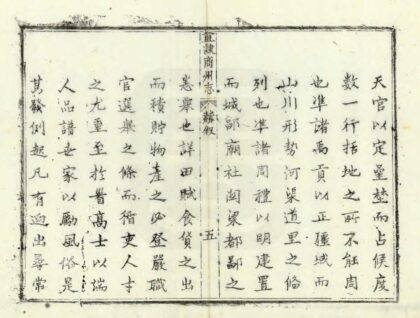 天官以定星埜而占候度
數一行括地之所不能周
也準諸禹貢以正疆域而
山川形勢河渠道里之條
列也準諸周禮以明建置
而城郭廟社閭梁都鄙之
直隸商州志 序叙 五
悉舉也詳田賦食貨之出
而積貯物產之必登嚴職
官選舉之條而循吏人才
之尤重至於耆高士以端
人品譜世家以勵風俗是
其發例起凡有迥出尋常